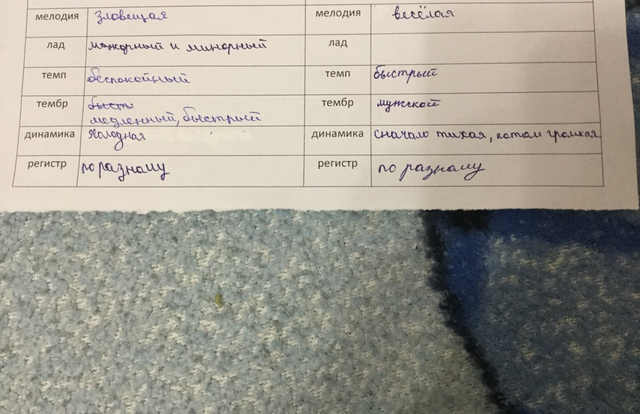 мелодия зловещая мелодия весёлая
лад мажорный и минорный лад
темп беспокойный темп быстрый
тембр быст. тембр мужской
медленный, быстрый
динамика Холодная динамика сначало тихая, потом громкая
регистр по разному регистр по разному